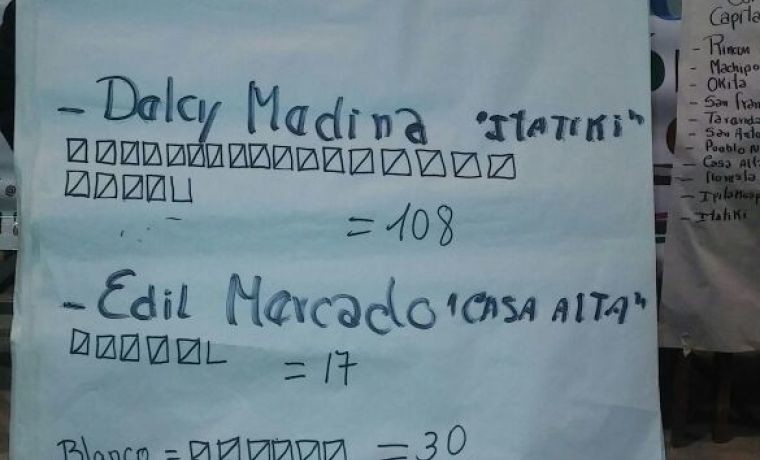 - Dalcy Madina "ITATIKI"
= 108
- Edil Mercado "CASA ALTA"
= 17
Blanco = = 30
Capita
- Rincon
- Machipo
- OKita
- San Fran
- Taranda
- San Anto
- Pueblo N
- Casa Alt
- Itatiki